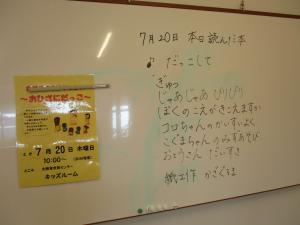 7月20日 本日読んだ本
♪ だっこして
ぎゅっ
じゃあじゃあ びりびり
ぼくのこえがきこえますか
コロちゃんのかいすいよく
こぐまちゃんのみずあそび
おとうさん だいすき
紙工作 かざぐるま
～おひざにだっこ～
とき 7月20日 木曜日
10:00～
ところ
キッズルーム